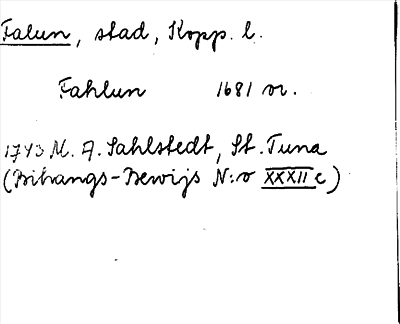 Falun, stad, Kopp. l.
Fahlun 1681 or.
1743 M. A. Sahlstedt, St. Tuna
(Bihangs-Bewijs N:o XXXII c)